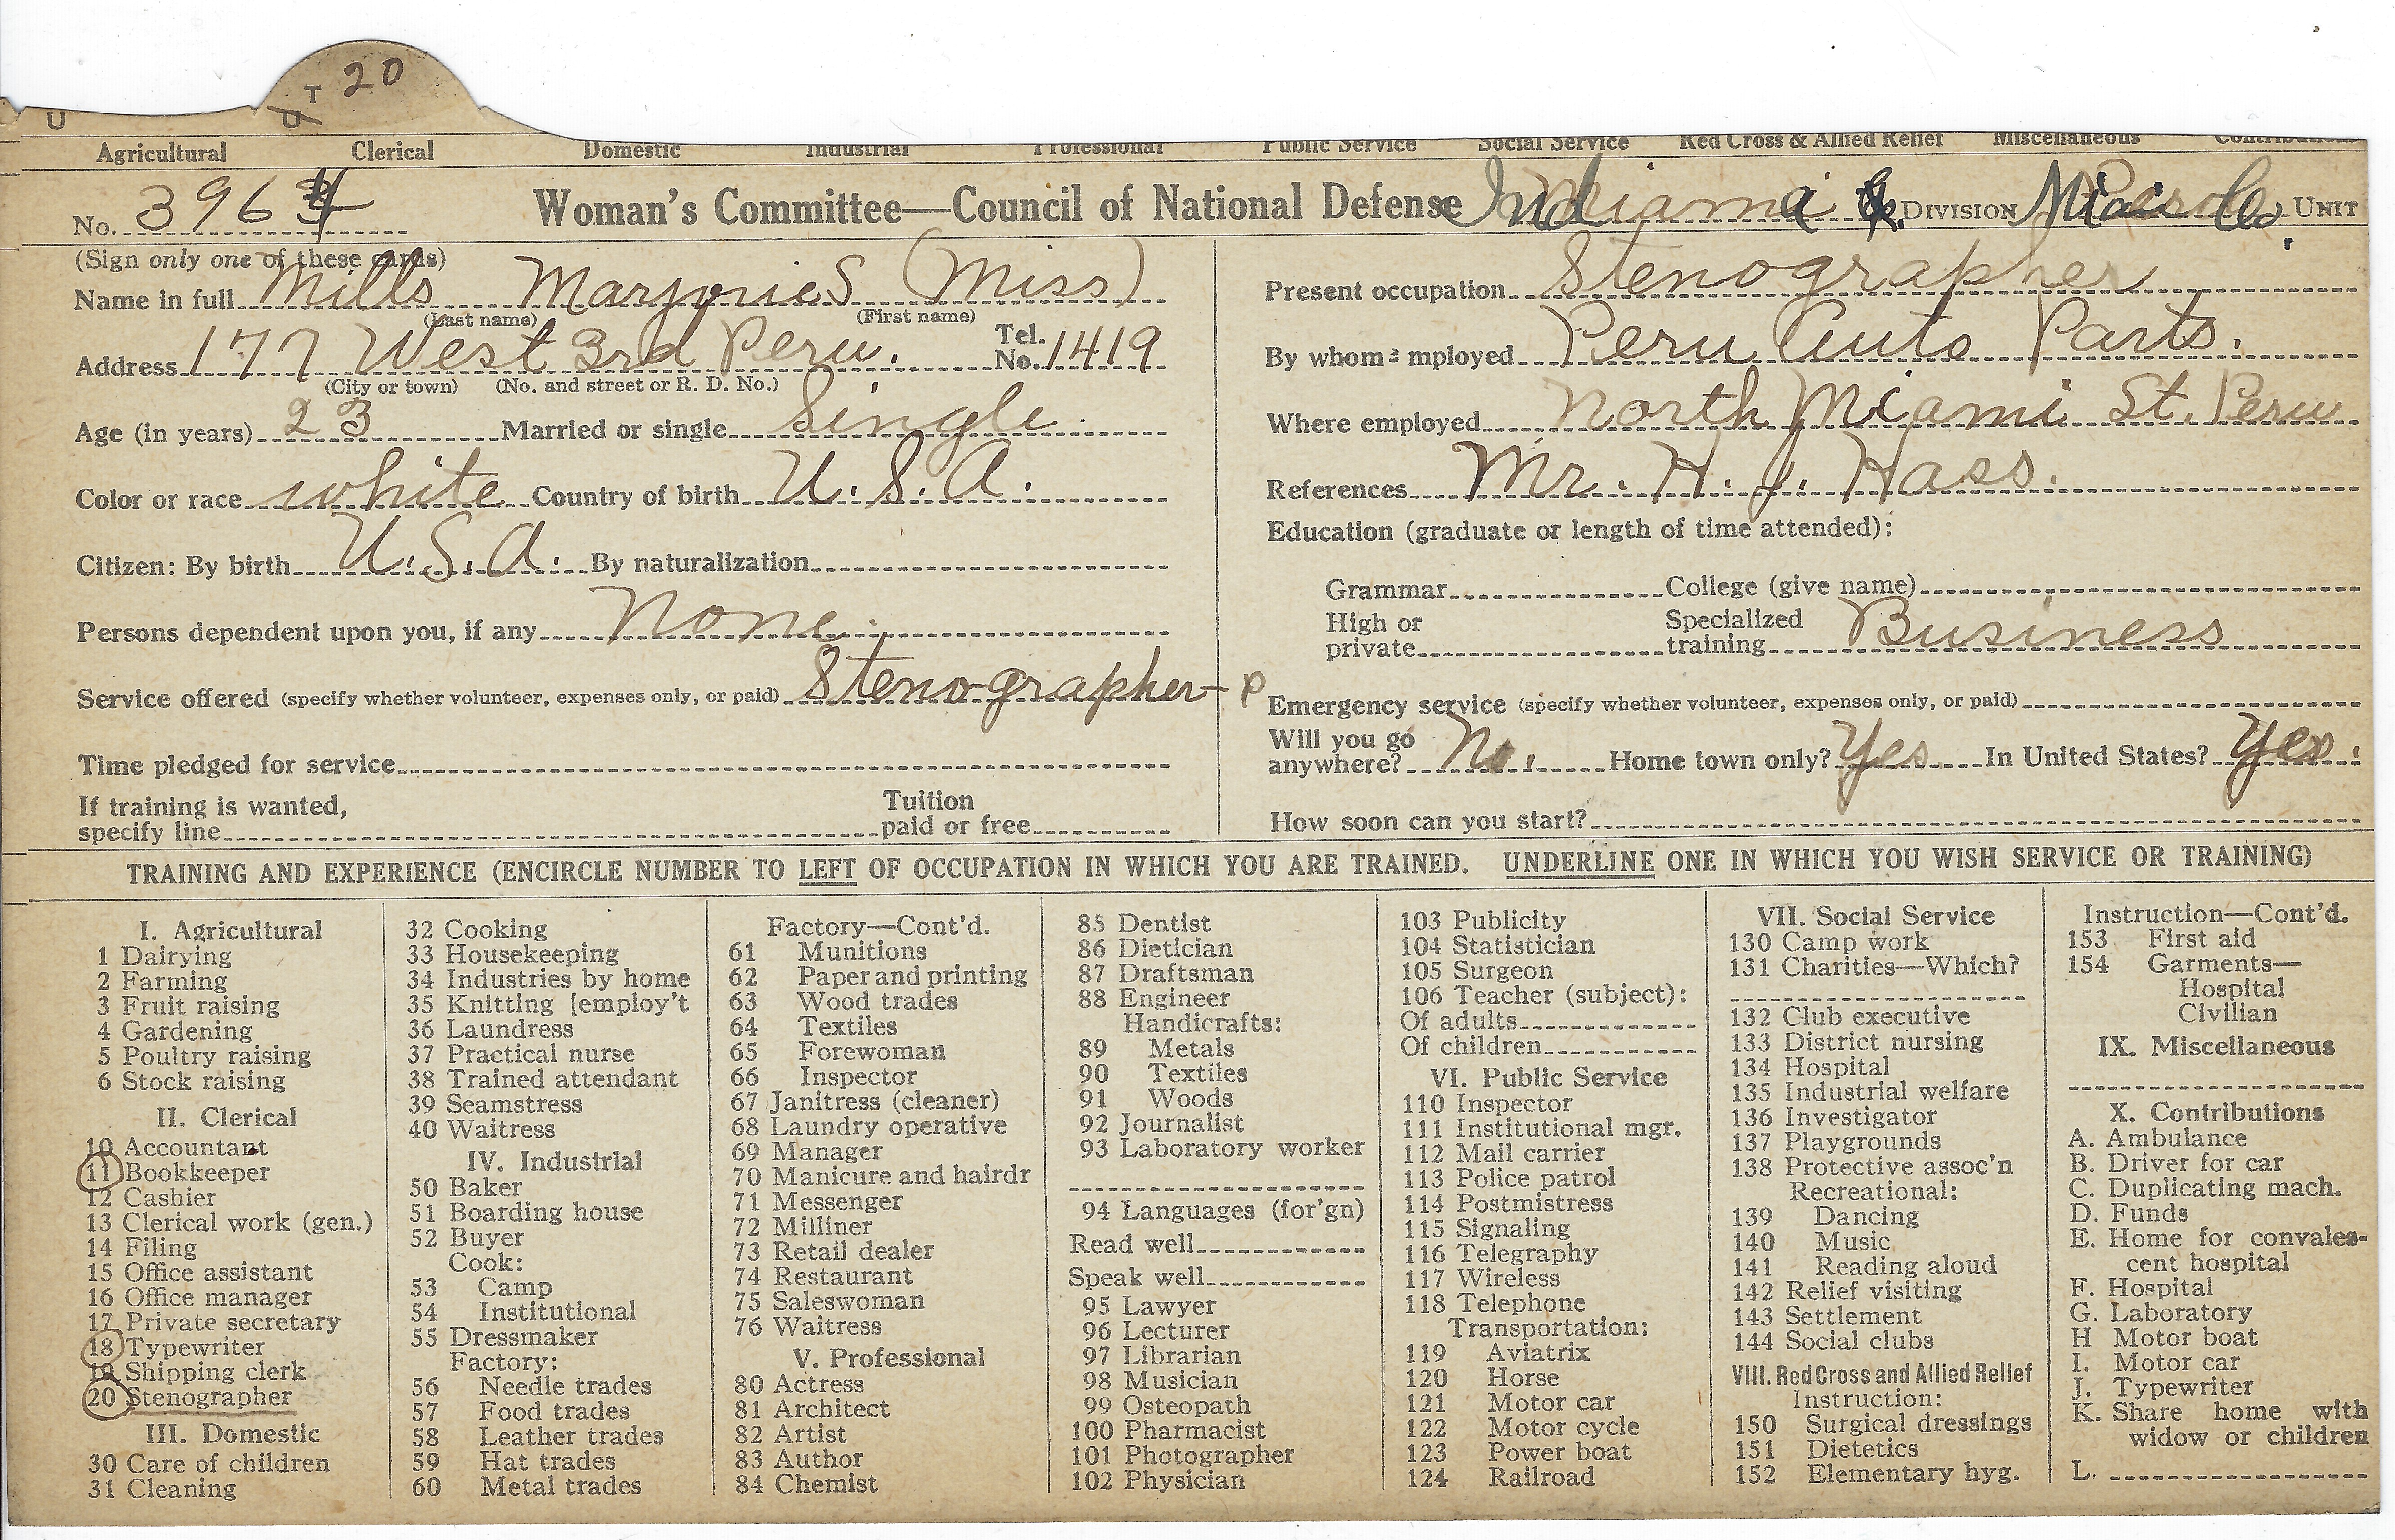 T 20
U U
Agricultural Clerical Domestic Industrial Professional Public Service Social Service Red Cross & Allied Relief Miscellaneous Contributions
No. 3964 Woman's Committee—Council of National Defense Indiana DIVISION Miami Co. UNIT
(Sign only one of these cards)
Name in full Mills Marjorie S (Miss)
(Last name) (First name)
Address 177 West 3rd Peru. Tel. No. 1419
(City or town) (No. and street or R. D. No.)
Age (in years) 23 Married or single Single
Color or race white Country of birth U.S.A.
Citizen: By birth U.S.A. By naturalization
Persons dependent upon you, if any None.
Service offered (specify whether volunteer, expenses only, or paid) Stenographer - P
Time pledged for service
If training is wanted,
specify line Tuition paid or free
Present occupation Stenographer
By whom employed Peru Auto Parts.
Where employed North Miami St. Peru
References Mr. H. J. Hass.
Education (graduate or length of time attended):
Grammar College (give name)
High or private Specialized training Business
Emergency service (specify whether volunteer, expenses only, or paid)
Will you go anywhere? No. Home town only? Yes In United States? Yes.
How soon can you start?
TRAINING AND EXPERIENCE (ENCIRCLE NUMBER TO LEFT OF OCCUPATION IN WHICH YOU ARE TRAINED. UNDERLINE ONE IN WHICH YOU WISH SERVICE OR TRAINING)
I. Agricultural
1 Dairying
2 Farming
3 Fruit raising
4 Gardening
5 Poultry raising
6 Stock raising
II. Clerical
10 Accountant
11 Bookkeeper
12 Cashier
13 Clerical work (gen.)
14 Filing
15 Office assistant
16 Office manager
17 Private secretary
18 Typewriter
19 Shipping clerk
20 Stenographer
III. Domestic
30 Care of children
31 Cleaning
32 Cooking
33 Housekeeping
34 Industries by home
35 Knitting [employ't
36 Laundress
37 Practical nurse
38 Trained attendant
39 Seamstress
40 Waitress
IV. Industrial
50 Baker
51 Boarding house
52 Buyer
Cook:
53 Camp
54 Institutional
55 Dressmaker
Factory:
56 Needle trades
57 Food trades
58 Leather trades
59 Hat trades
60 Metal trades
Factory—Cont'd.
61 Munitions
62 Paper and printing
63 Wood trades
64 Textiles
65 Forewoman
66 Inspector
67 Janitress (cleaner)
68 Laundry operative
69 Manager
70 Manicure and hairdr
71 Messenger
72 Milliner
73 Retail dealer
74 Restaurant
75 Saleswoman
76 Waitress
V. Professional
80 Actress
81 Architect
82 Artist
83 Author
84 Chemist
85 Dentist
86 Dietician
87 Draftsman
88 Engineer
Handicrafts:
89 Metals
90 Textiles
91 Woods
92 Journalist
93 Laboratory worker
94 Languages (for'gn)
Read well
Speak well
95 Lawyer
96 Lecturer
97 Librarian
98 Musician
99 Osteopath
100 Pharmacist
101 Photographer
102 Physician
103 Publicity
104 Statistician
105 Surgeon
106 Teacher (subject):
Of adults
Of children
VI. Public Service
110 Inspector
111 Institutional mgr.
112 Mail carrier
113 Police patrol
114 Postmistress
115 Signaling
116 Telegraphy
117 Wireless
118 Telephone
Transportation:
119 Aviatrix
120 Horse
121 Motor car
122 Motor cycle
123 Power boat
124 Railroad
VII. Social Service
130 Camp work
131 Charities—Which?
132 Club executive
133 District nursing
134 Hospital
135 Industrial welfare
136 Investigator
137 Playgrounds
138 Protective assoc'n
Recreational:
139 Dancing
140 Music
141 Reading aloud
142 Relief visiting
143 Settlement
144 Social clubs
VIII. Red Cross and Allied Relief
Instruction:
150 Surgical dressings
151 Dietetics
152 Elementary hyg.
Instruction—Cont'd.
153 First aid
154 Garments—
Hospital
Civilian
IX. Miscellaneous
X. Contributions
A. Ambulance
B. Driver for car
C. Duplicating mach.
D. Funds
E. Home for convales-
cent hospital
F. Hospital
G. Laboratory
H Motor boat
I. Motor car
J. Typewriter
K. Share home with
widow or children
L.